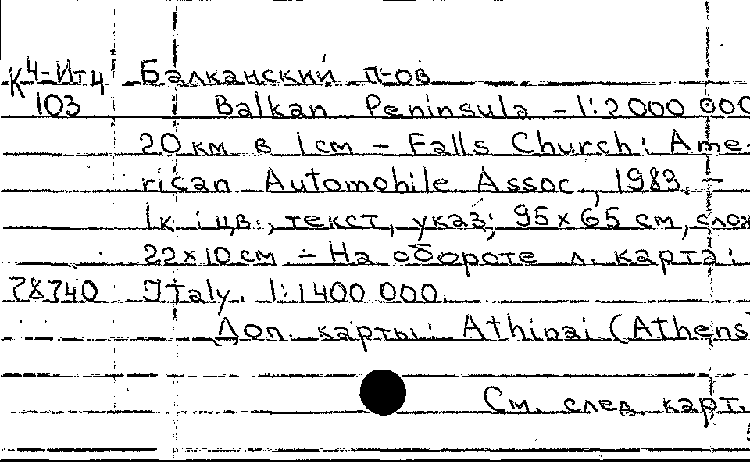 К4-Ит4 Балканский п-ов
103 Balkan Peninsula - 1:2 000 000
20 км в 1 см - Falls Church: Ame-
rican Automobile Assoc, 1989. -
1к: цв., текст, указ; 95х65 см, слож
22х10 см - На обороте л. карта:
78740 Italy. 1:1400 000.
Доп. карты: Athinai (Athens)
См. след. карт.